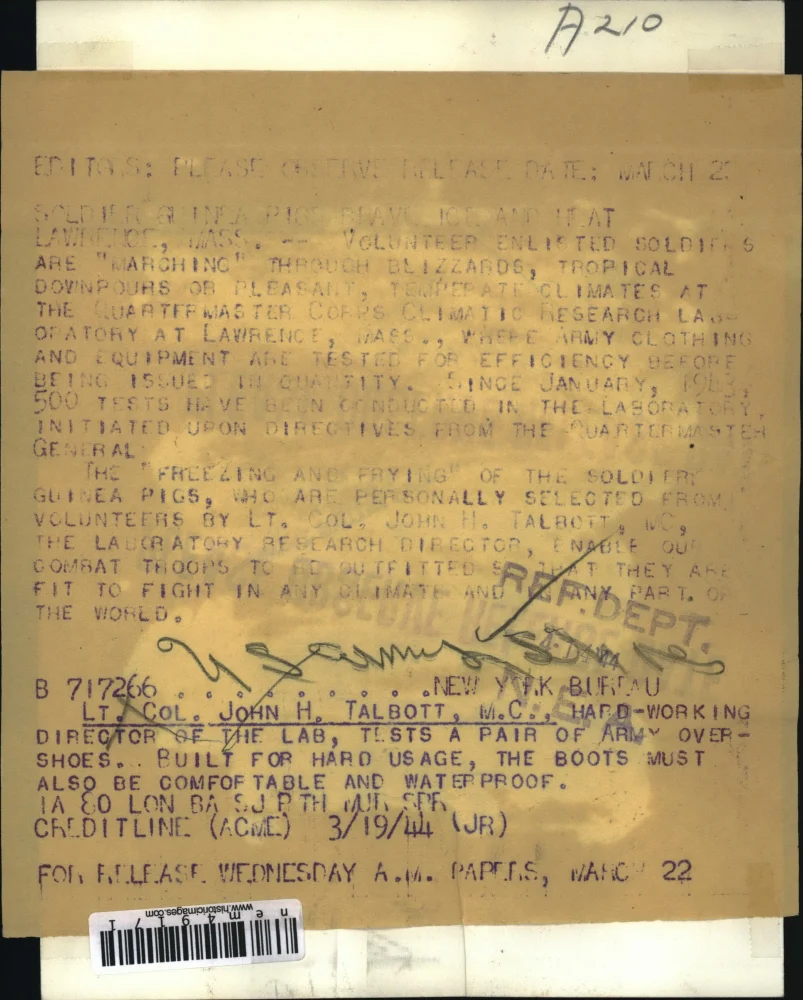 A210
EDITORS: PLEASE OBSERVE RELEASE DATE: MARCH 2
SOLDIER GUINEA PIGS BRAVE ICE AND HEAT
LAWRENCE, MASS. -- VOLUNTEER ENLISTED SOLDIERS
ARE "MARCHING" THROUGH BLIZZARDS, TROPICAL
DOWNPOURS OR PLEASANT, TEMPERATE CLIMATES AT
THE QUARTERMASTER CORPS CLIMATIC RESEARCH LAB-
ORATORY AT LAWRENCE, MASS., WHERE ARMY CLOTHING
AND EQUIPMENT ARE TESTED FOR EFFICIENCY BEFORE
BEING ISSUED IN QUANTITY. SINCE JANUARY,
500 TESTS HAVE BEEN CONDUCTED IN THE LABORATORY,
INITIATED UPON DIRECTIVES FROM THE QUARTERMASTER
GENERAL.
THE "FREEZING AND FRYING" OF THE SOLDIER
GUINEA PIGS, WHO ARE PERSONALLY SELECTED FROM
VOLUNTEERS BY LT. COL. JOHN H. TALBOTT, MC,
THE LABORATORY RESEARCH DIRECTOR, ENABLE OUR
COMBAT TROOPS TO BE OUTFITTED SO THAT THEY ARE
FIT TO FIGHT IN ANY CLIMATE AND ANY PART OF
THE WORLD.
REF. DEPT.
N.E.A.
B 717266 . . . . . . . . . .NEW YORK BUREAU
LT. COL. JOHN H. TALBOTT, M.C., HARD-WORKING
DIRECTOR OF THE LAB, TESTS A PAIR OF ARMY OVER-
SHOES. BUILT FOR HARD USAGE, THE BOOTS MUST
ALSO BE COMFORTABLE AND WATERPROOF.
1A 80 LON BA SJ P TH MUR SPR
CREDITLINE (ACME) 3/19/44 (JR)
FOR RELEASE WEDNESDAY A.M. PAPERS, MARCH 22
www.historicimages.com
nem49171